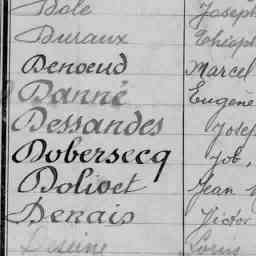 Dole Joseph
Duraux Théoph
Denoeud Marcel
Danné Eugène
Dessandes Josep
Dobersecq Job,
Dolivet Jean
Denais Victor
Deseine Louis